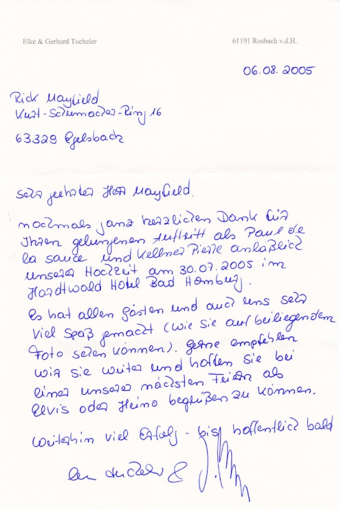 Elke & Gerhard Tscheler
61191 Rosbach v.d.H.
06.08.2005
Rick Mayfield
Kurt-Schumacher-Ring 16
63329 Egelsbach
Sehr geehrter Herr Mayfield,
nochmals ganz herzlichen Dank für
Ihren gelungenen Auftritt als Paul de
la sauce und Kellner Pierre anläßlich
unserer Hochzeit am 30.07.2005 im
Hardtwald Hotel Bad Homburg.
Es hat allen Gästen und auch uns sehr
viel Spaß gemacht (wie Sie auf beiliegendem
Foto sehen können). Gerne empfehlen
wir Sie weiter und hoffen Sie bei
einer unserer nächsten Feiern als
Elvis oder Heino begrüßen zu können.
Weiterhin viel Erfolg - bis hoffentlich bald